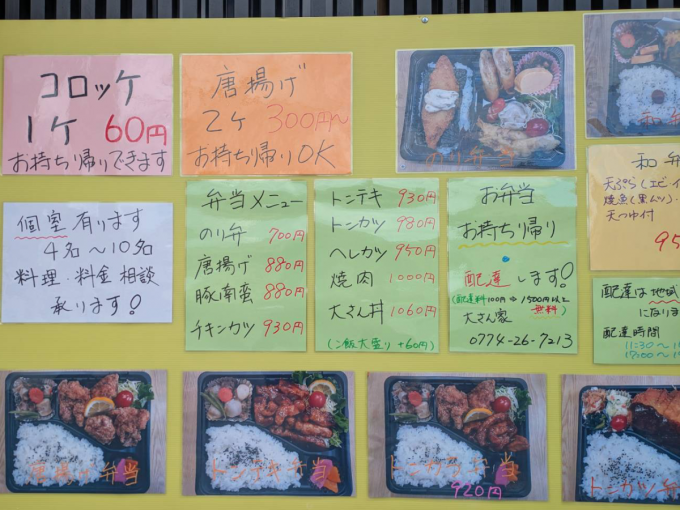 コロッケ
1ケ 60円
お持ち帰りできます
唐揚げ
2ケ 300円〜
お持ち帰りOK
のり弁
和弁
和弁
天ぷら(エビ
焼魚
天つゆ付
95
個室有ります
4名〜10名
料理・料金 相談
承ります!
弁当メニュー
のり弁 700円
唐揚げ 880円
豚南蛮 880円
チキンカツ 930円
トンテキ 930円
トンカツ 980円
ヘレカツ 950円
焼肉 1000円
大さん丼 1060円
(ご飯大盛り +60円)
お弁当
お持ち帰り
配達します!
(配達料100円⇒1500円以上
無料)
大さん家
0774-26-7213
配達は地域
になりま
配達時間
11:30〜1
17:00〜1
唐揚げ弁当
弁当
弁当
920円
トンカツ弁